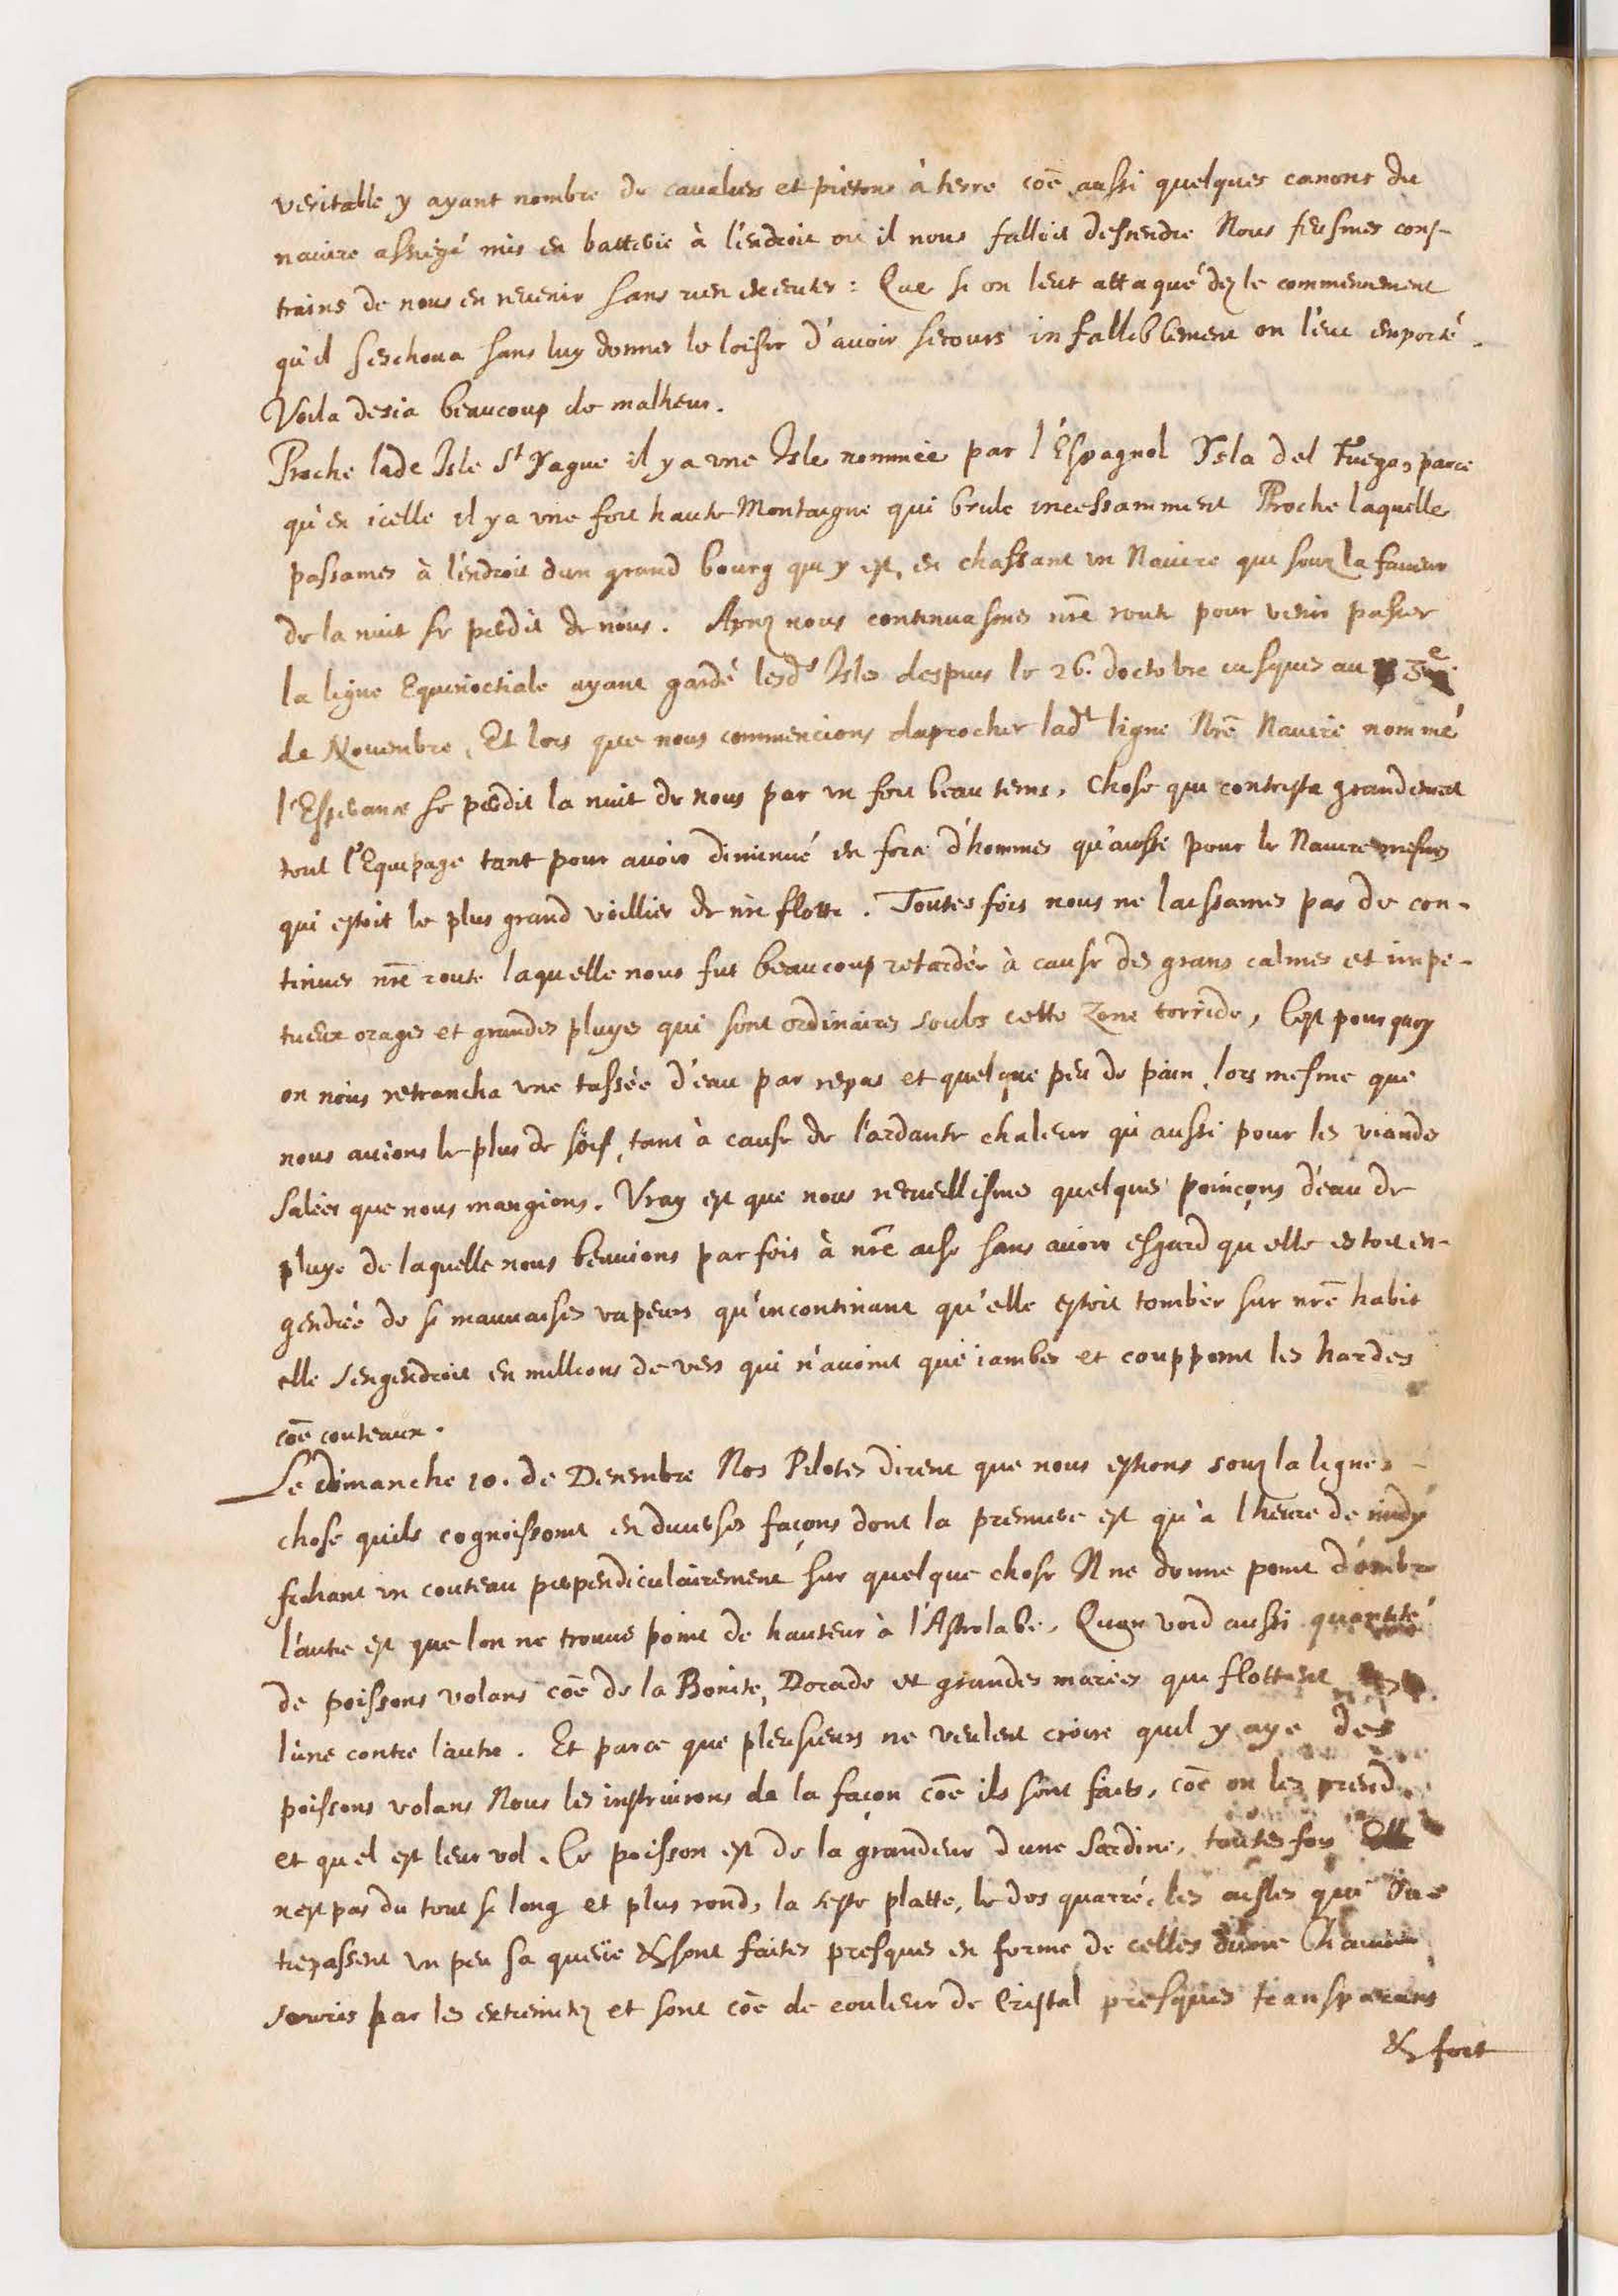 veritable y ayant nombre de cavaliers et pietons à terre coē aussi quelques canons du
navire assiegé mis en batterie à l'endroit ou il nous falloit dessendre Nous feusmes cons-
trains de nous en revenir sans rien executer : Que si on leut attaqué dez le commencement
qu'il s'eschoua sans luy donner le loisir d'avoir secours infalliblement on l'eut emporté.
Voila desia beaucoup de malheur.
Proche lade Isle St Yague il y a vne Isle nommée par l'Espagnol Ysla del Fuego, parce
qu'en icelle il y a vne fort haute Montaigne qui brule incessamment Proche laquelle
passames à l'endroit dun grand bourg qui y est, en chassant vn Navire qui souz la faveur
de la nuit se perdit de nous. Apres nous continuasmes nrē route pour venir passer
la ligne Equinoctiale ayant gardé lesds Isles despuis le 26. doctobre iusques au 3e
de Novembre, Et lors que nous commencions daprocher ladt ligne Nrē Navire nommé
l'Esperance se perdit la nuit de nous par vn fort beau tems, chose qui contrista grandement
tout l'Equipage tant pour avoir diminué en force d'hommes qu'aussi pour le Navire mesmes
qui estoit le plus grand voillier de nrē flotte. Toutes fois nous ne laissames pas de con-
tinuer nrē route laquelle nous fut beaucoup retardée à cause des grans calmes et impe-
tueux orages et grandes pluyes qui sont ordinaires soubs cette Zone torride, C'est pourquoy
on nous retrancha vne tassée d'eau par repas et quelque peu de pain, lors mesme que
nous avions le plus de soif, tant à cause de l'ardante chaleur qu'aussi pour les viandes
salées que nous mangions. Vray est que nous recueillismes quelques poinçons d'eau de
pluye de laquelle nous beuvions par fois à nrē aise sans avoir esgard qu'elle estoit en-
gendrée de si mauvaises vapeurs qu'incontinant qu'elle estoit tombée sur nrē habit
elle s'engendroit en millions de vers qui n'avoint que iambes et couppoint les hardes
coē couteaux.
Le dimanche 10. de Decembre Nos Pilotes dirent que nous estions souz la ligne,
chose quils cognoissoint en diverses façons dont la premiere est qu'à lheure de midy
fichant vn couteau perpendiculairement sur quelque chose Il ne donne point d'ombre
l'autre est que lon ne trouve point de hauteur à l'Astrolabe. Quon void aussi quantité
de poissons volans coē de la Bonite, Dorade et grandes marées qui flottent
lune contre lautre. Et parce que pleusieurs ne veulent croire quil y aye des
poissons volans Nous les instruirons de la façon coē ils sont faits, coē on les prend
et quel est leur vol. Ce poisson est de la grandeur d'une Sardine, toutesfois
nest pas du tout si long et plus rond, la teste platte, le dos quarré, les aisles qui Oue
trepassent vn peu sa queüe & sont faites presques en forme de celles dune Chauue
souris par les extremitez et sont coē de couleur de Cristal presques transparans
& fort